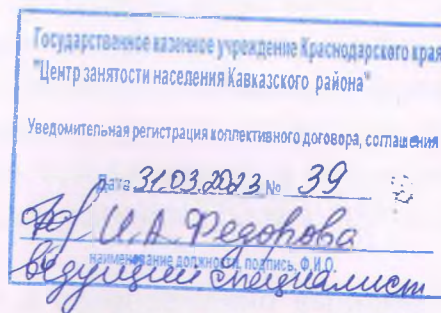 Государственное казенное учреждение Краснодарского края
"Центр занятости населения Кавказского района"
Уведомительная регистрация коллективного договора, соглашения
Дата 31.03.2023 № 39
И.А. Федорова
наименование должности, подпись, Ф.И.О.
ведущий специалист